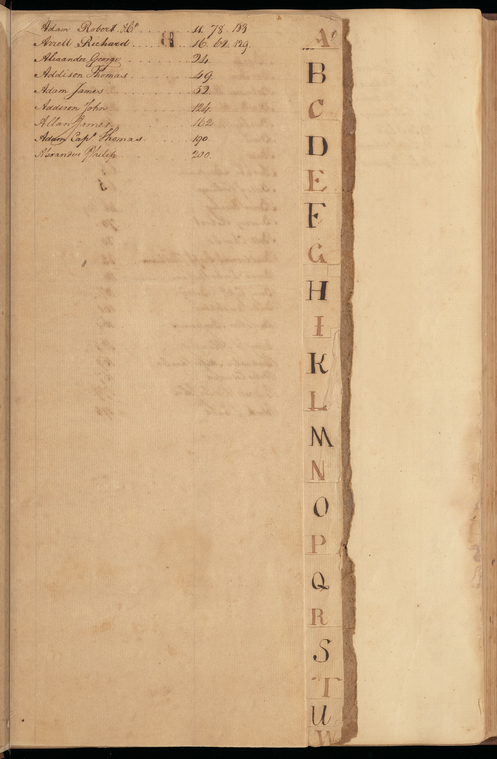 Adam Robert & Co 11. 78. 133
Arrell Richard 16. 62. 129
Alexander George 24
Addison Thomas 49
Adam James 52
Adderson John 124
Allan James 162
Capt. Thomas 190
Philip 200
A
B
C
D
E
F
G
H
I
K
L
M
N
O
P
Q
R
S
T
U
W